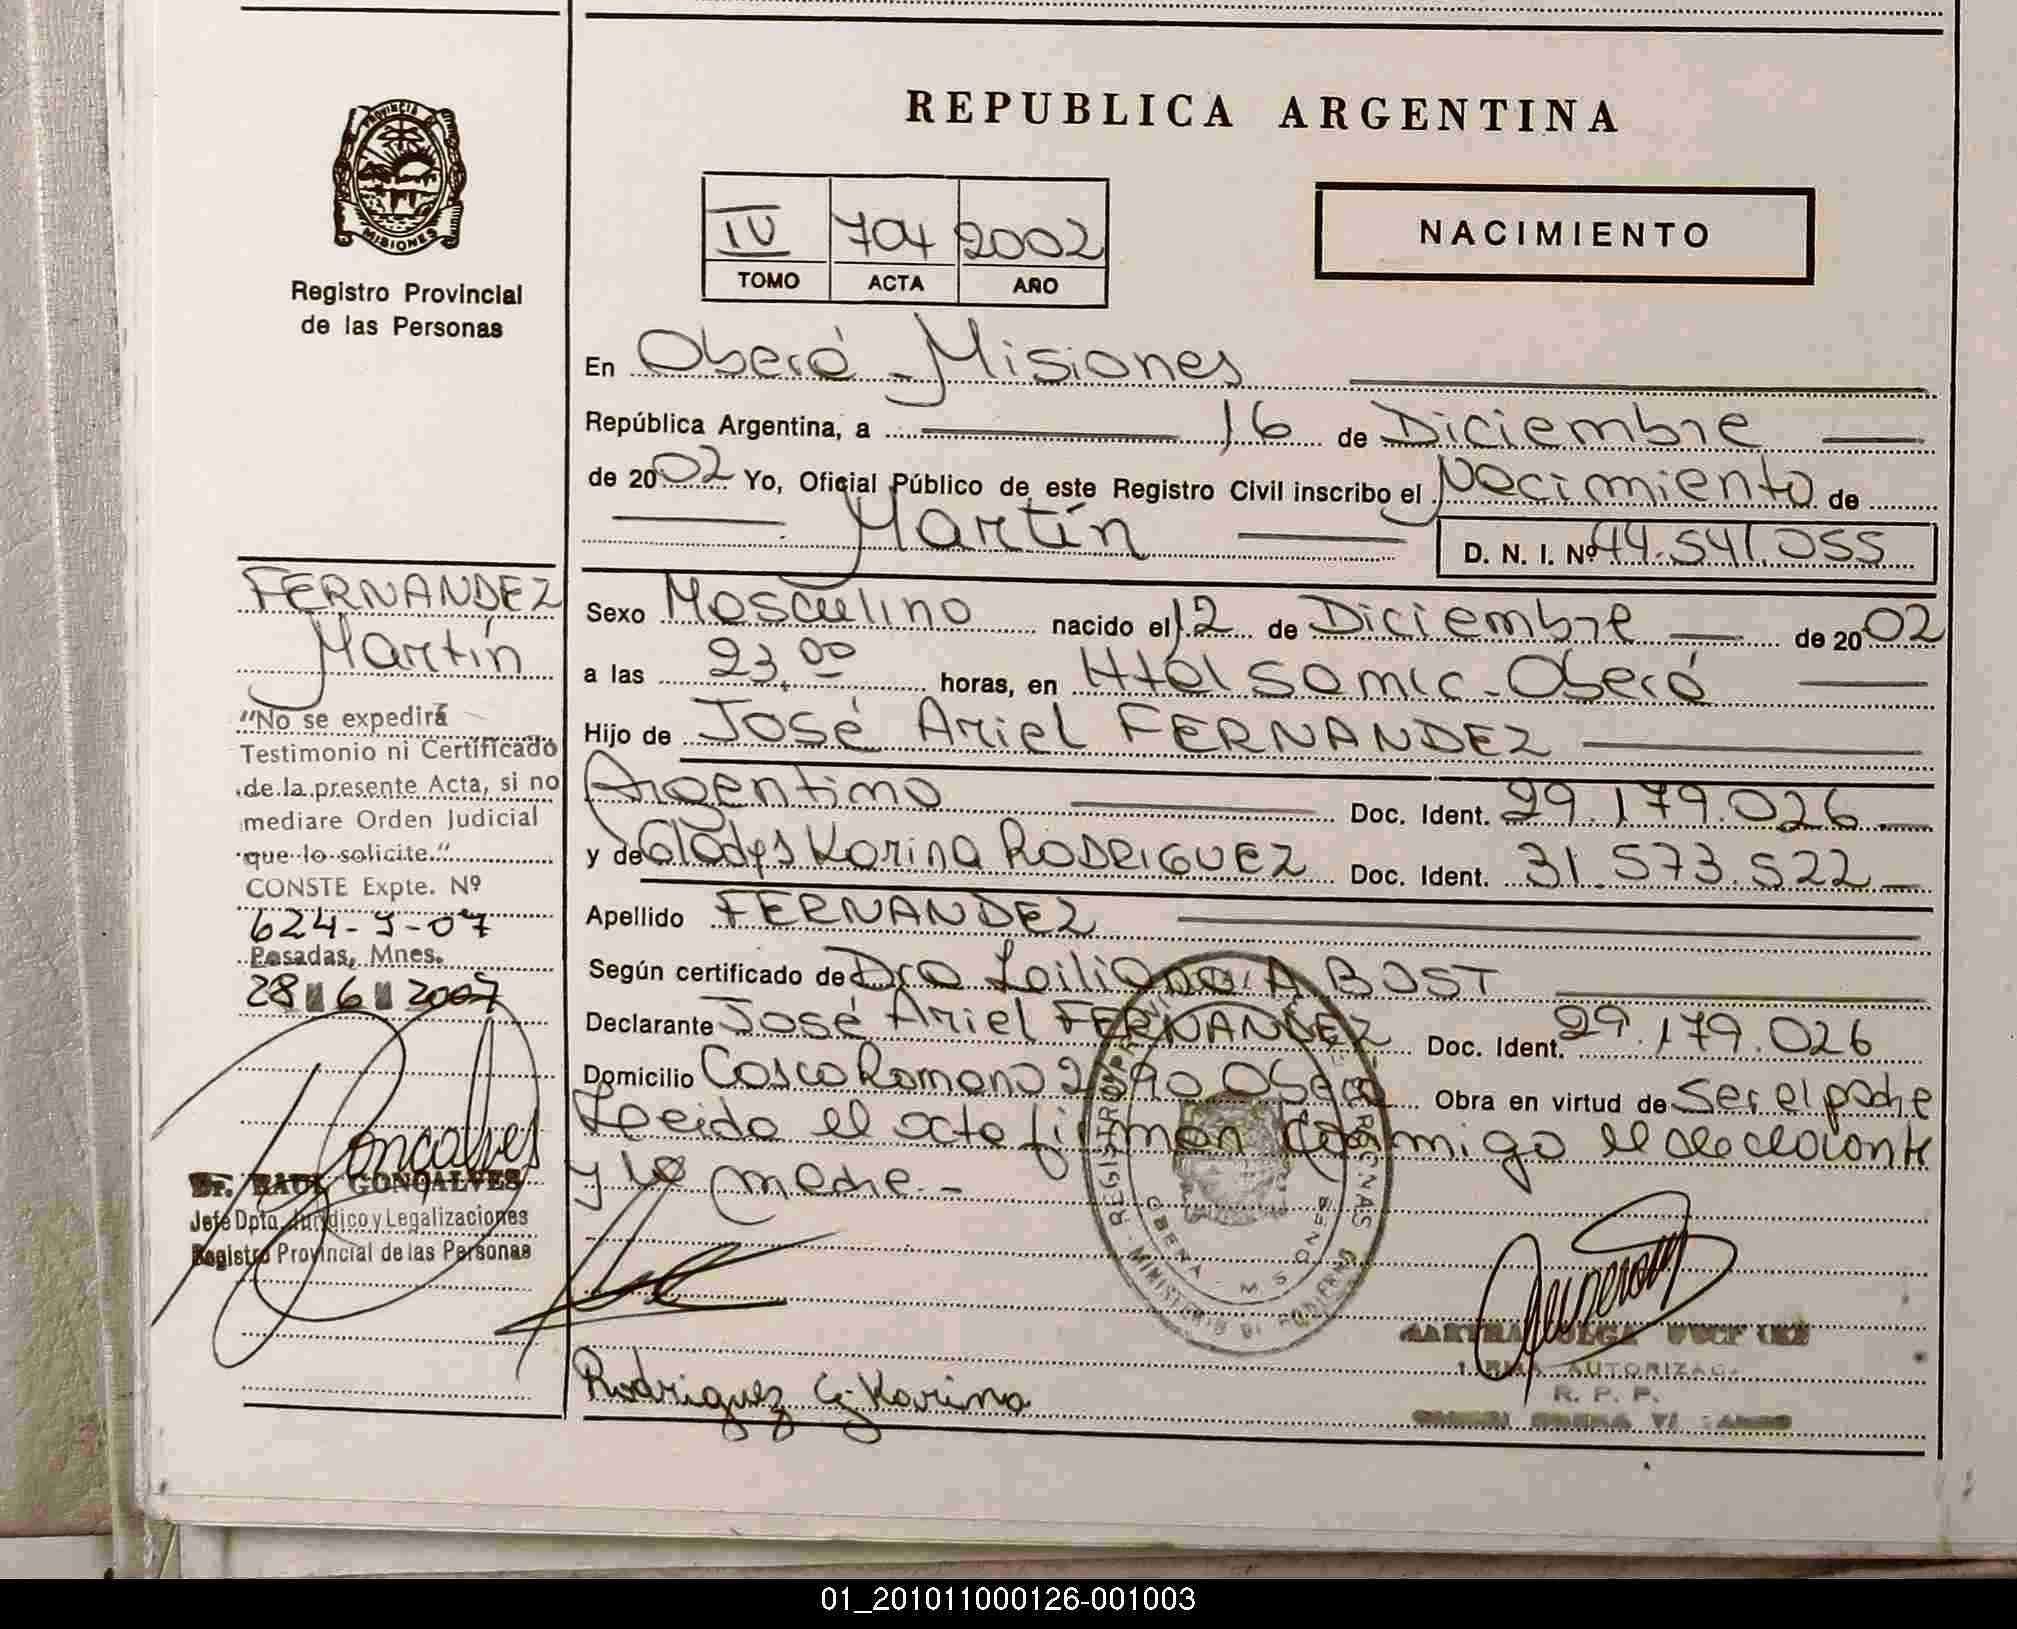 PROVINCIA DE
MISIONES
Registro Provincial
de las Personas
REPUBLICA ARGENTINA
IV 704 2002
TOMO ACTA AÑO
NACIMIENTO
En Oberá - Misiones
República Argentina, a 16 de Diciembre
de 2002 Yo, Oficial Público de este Registro Civil inscribo el Nacimiento de
Martín D. N. I. Nº 44.541.055
FERNANDEZ
Martín
Sexo Masculino nacido el 12 de Diciembre de 2002
a las 23,00 horas, en Htal Samic - Oberá
Hijo de José Ariel FERNANDEZ
Argentino Doc. Ident. 29.179.026
y de Gladys Karina RODRIGUEZ Doc. Ident. 31.573.522
Apellido FERNANDEZ
Según certificado de Dra A BOST
Declarante José Ariel FERNANDEZ Doc. Ident. 29.179.026
Domicilio Casco Romano Oberá Obra en virtud de Ser el padre
Leída el acta firman conmigo el declarante
y la madre.-
"No se expedirá
Testimonio ni Certificado
de la presente Acta, si no
mediare Orden Judicial
que lo solicite."
CONSTE Expte. Nº
624-9-07
Posadas, Mnes.
28 6 2007
Goncalves
Dr. RAUL GONÇALVES
Jefe Dpto. Jurídico y Legalizaciones
Registro Provincial de las Personas
Rodriguez G. Karina
MARTHA OLGA
FIRMA AUTORIZADA
R. P. P.
01_201011000126-001003